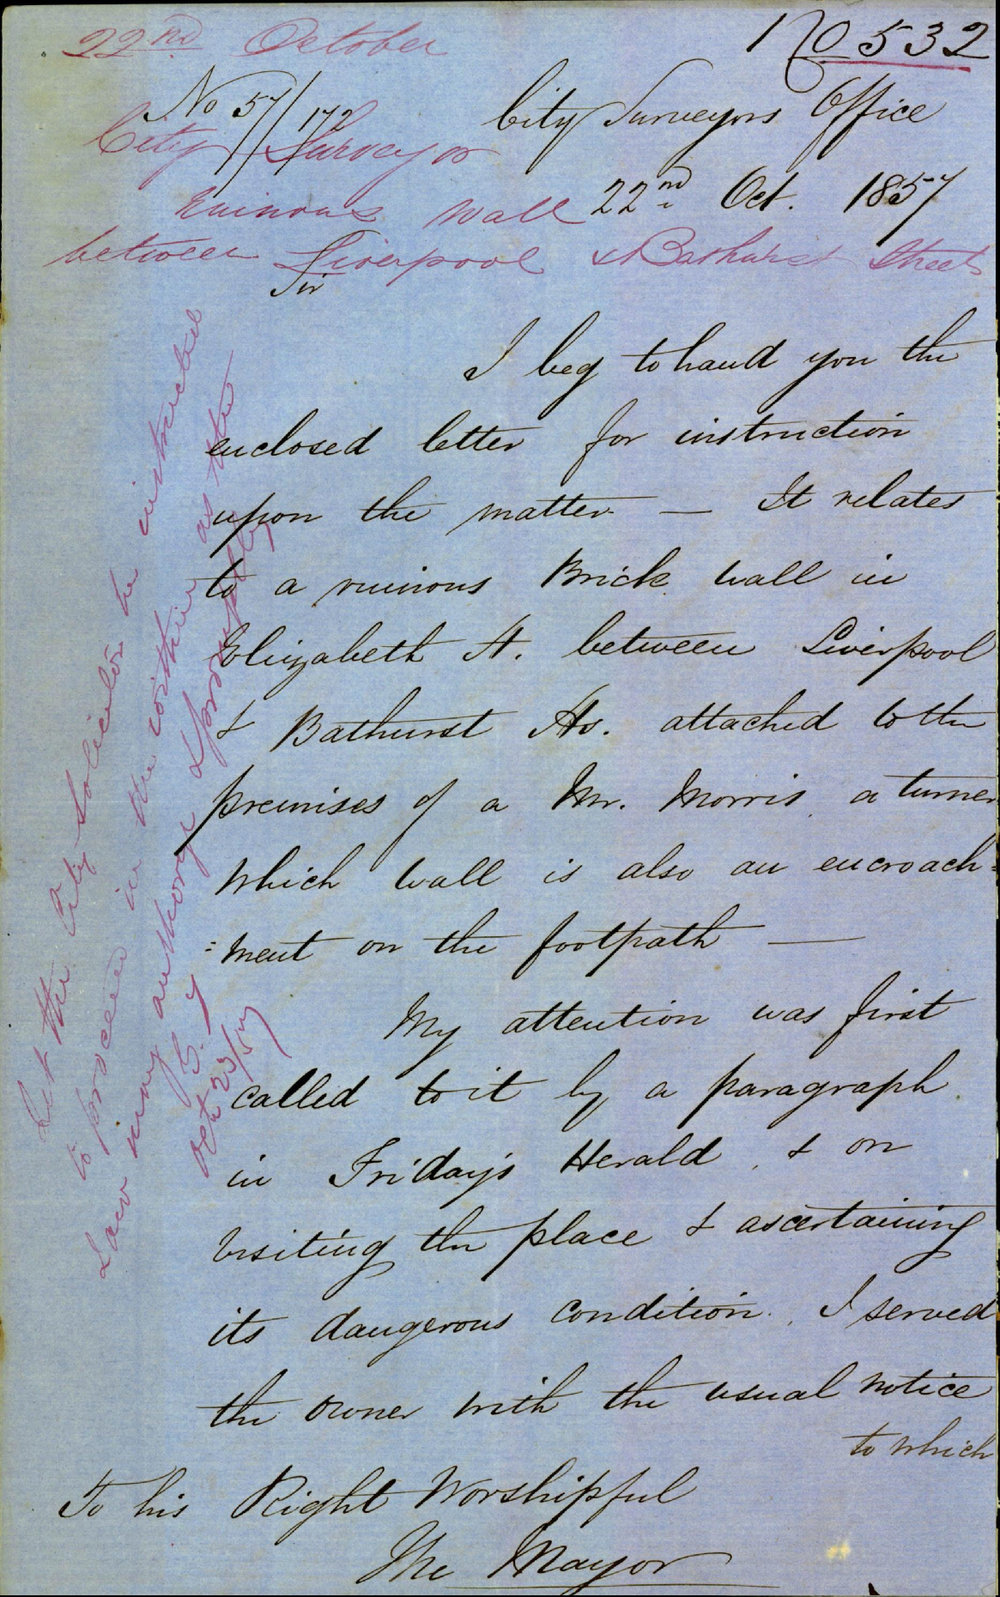 22nd October
532
No 57/172
City Surveyor
City Surveyors Office
Ruinous Wall
22nd Oct. 1857
between Liverpool & Bathurst Streets
Sir
I beg to hand you the
enclosed letter for instruction
upon the matter — It relates
to a ruinous Brick wall in
Elizabeth St. between Liverpool
& Bathurst Sts. attached to the
premises of a Mr. Morris a turner
which wall is also an encroach=
=ment on the footpath —
My attention was first
called to it by a paragraph
in Friday's Herald, & on
visiting the place & ascertaining
its dangerous condition, I served
the owner with the usual notice
to which
To his Right Worshipful
The Mayor
Let the City Solicitor be instructed
to proceed in the matter as the
Law may authorize & promptly
Oct 23/57